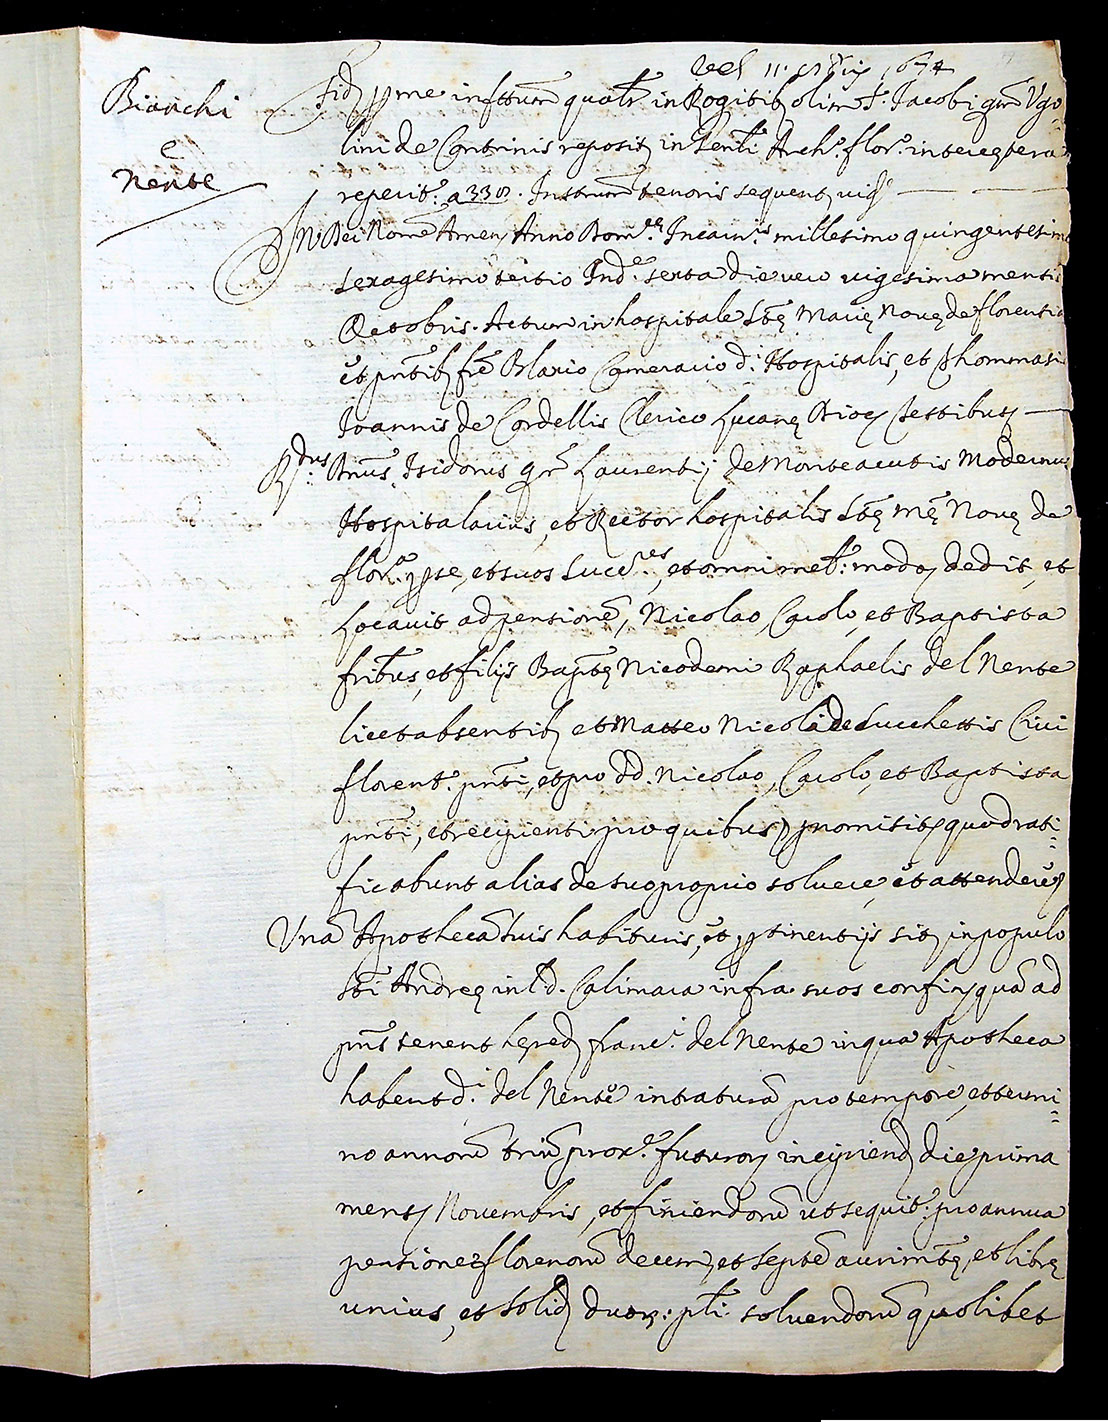 Bianchi
e
Nente
Vel 11. 1674
Fid p me infttum qualr in Rogitibq olim S. Jacobi qm Ugo
lini de Contrinis reposit in Genli Arch.º flor.º in tereq tera
reperit.r a 330. Instrum tenoris sequent vigt
In Dei Nom Amen Anno Dom.ce Incarn.is millesimo quingentesimo
sexagesimo tertio Ind.e sexta die vero vigesima mensis
Octobris. Actum in hospitale Stę Marię Nouę de florentia
et pntibq fre Blasio Camerario d.i Hospitalis, et Thommasi
Joannis de Cordellis Clerico Lucanę Dioc testibus
R.dus Dnus Isidorus qm Laurentij de Monteacutis Modernus
Hospitalarius, et Rector hospitalis Stę Mę Nouę de
flor.a p se, et suos succ.res, et omni mel.r modo dedit, et
Locavit ad pensione, Nicolao, Carlo, et Baptista
fribus, et filijs Baptę Nicodemi Raphaelis del Nente
licet absentibq et Matteo Nicolai de Lucchettis Ciui
florent.º pnti, et pro dd. Nicolao, Carlo, et Baptista
pnti, et recipienti pro quibus promisit quod rati=
ficabunt alias de suo proprio soluere, et attendere
Una Apotheca suis habituris, et ptinentijs sit in populo
Sti Andreę in l d. Calimara infra suos confi qua ad
pns tenent hered franc.i del Nente in qua Apotheca
habent d.i del Nente intratura pro tempore, et termi=
no annor triu prox.e futuror incipiend die prima
mens Novembris, et finiendoru ut sequit.r pro annua
pensione florenoru decem, et septe auri mtę, et librę
unius, et solid duor: pli soluendoru quolibet